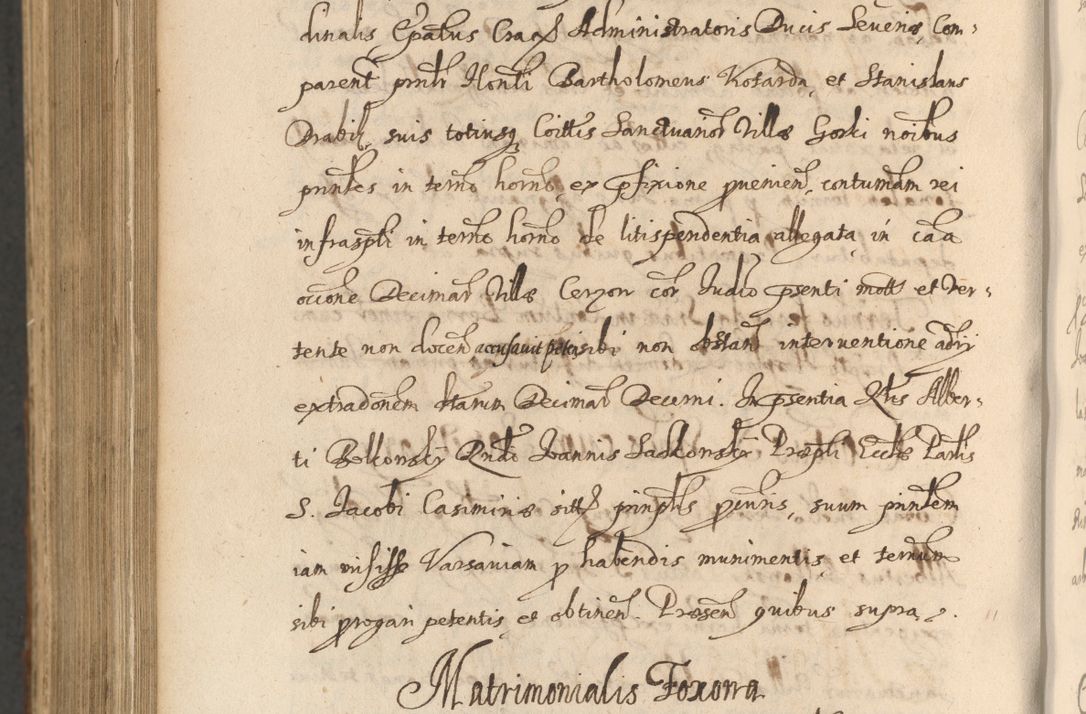 dinalis, Epatus Crac Administratoris Ducis Severiæ, Com-
parent prnti Honti Bartholomeus Kosarda, et Stanislaus
Drabik, suis totiusq Coittis Sanctuanor Villæ Gorki noibus
prntes in termo horno, ex pfixione pvenien, contumam rei
infraspti in termo horno de litispendentia allegata in caa
occone Decimar Villæ Cerzov cor Iudio psenti mott et ver-
tente non docen accusavit petiit sibi non obstan interventione adrij
extradonem istarum Decimar Decerni. In psentia Rdis Alber-
ti Belkonsky Rndi Ioannis Sadkonsky Præpti Eccliæ Parlis
S. Iacobi Casimiriæ sitt prinplis pcuris, suum prinlem
iam misisse Varsaviam p habendis munimentis, et termum
sibi prorogari petentis et obtinen. Præsen quibus supra.
Matrimonialis Foxowa